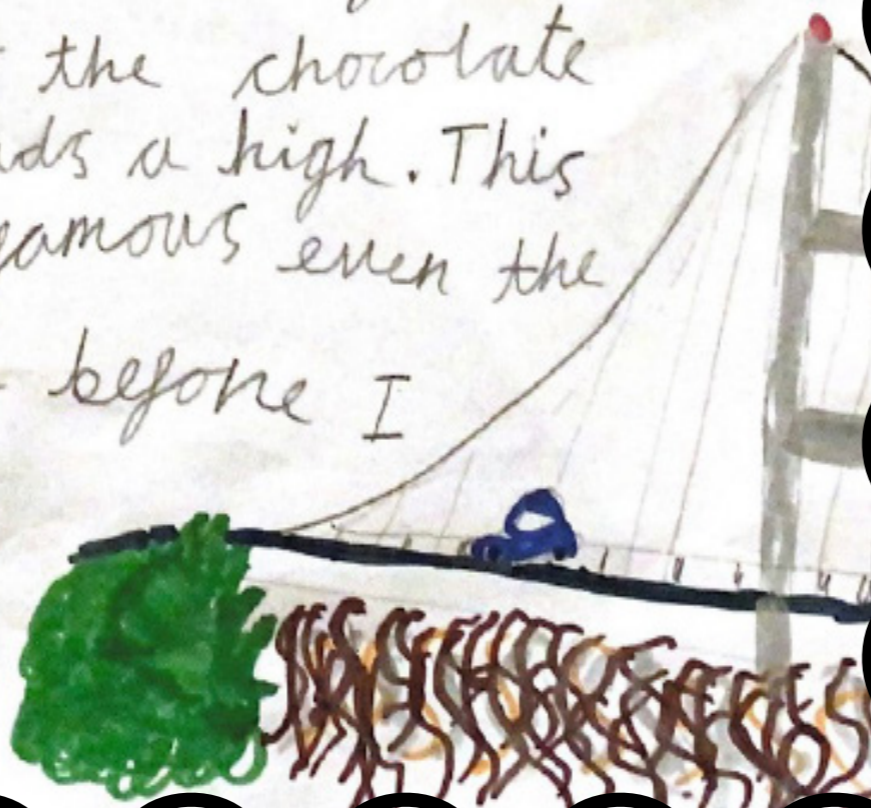 the chocolate
a high. This
even the
before I